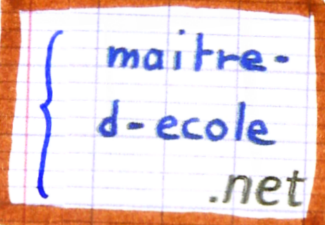 maitre-
d-ecole
.net